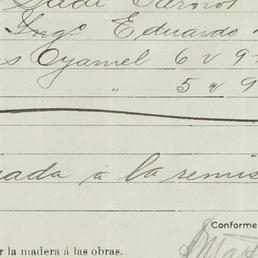 Ingº Eduardo
Oyamel 6 v 9
" 5 v 9
á la remis
Conforme
r la madera á las obras.